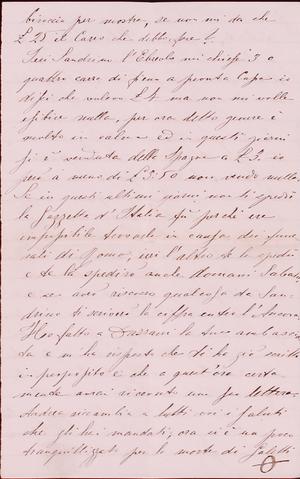 per mostro, se non mi da che
£ 25 il Caro che debbo fare?
Ieri Sandrino l'Ebreolo mi chiese 3 o
quattro carre di fieno a pronta Capa io
dissi che voleva £ 4 ma non mi volle
esibire nulla, per ora detto genere è
molto in calma ed in questi giorni
si è venduto delle a £ 3. io
però a meno di £ 3.50 non vendo nulla.
Se in questi ultimi giorni non ti spedii
la Gazzetta d'Italia fu perchè era
impossibile trovarla in causa dei
di Roma, ieri l'altro te la spedii
e te la spedirò anche domani Sabato
e se avrò riscosso qualcosa da San-
drino ti scriverò la cifra entro l'Ancora.
Ho fatto a la tua ambascia-
ta e m'ha risposto che ti ha già scritto
in proposito e che a quest'ora certa-
mente avrai ricevuto una sua lettera.
Andrea ricambia a tutti voi i saluti
che gli hai mandati, ora si è un poco
tranquillizzato per la morte di